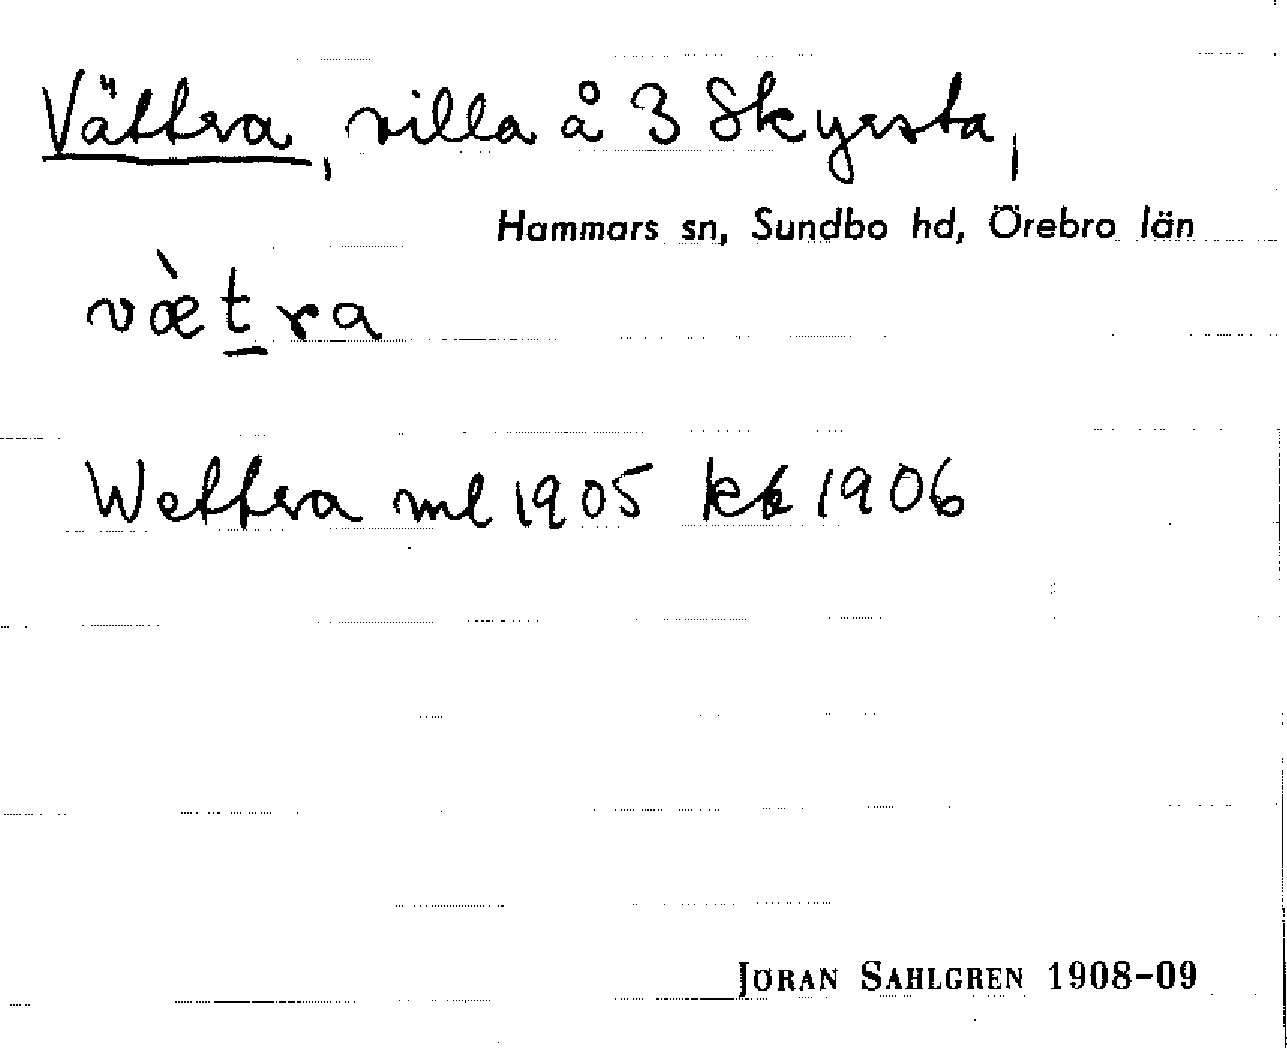 Vättra, villa å 3 Skyrsta,
Hammars sn, Sundbo hd, Örebro län
væ̀t̲ra
Wettra ml 1905 kk 1906
JÖRAN SAHLGREN 1908-09